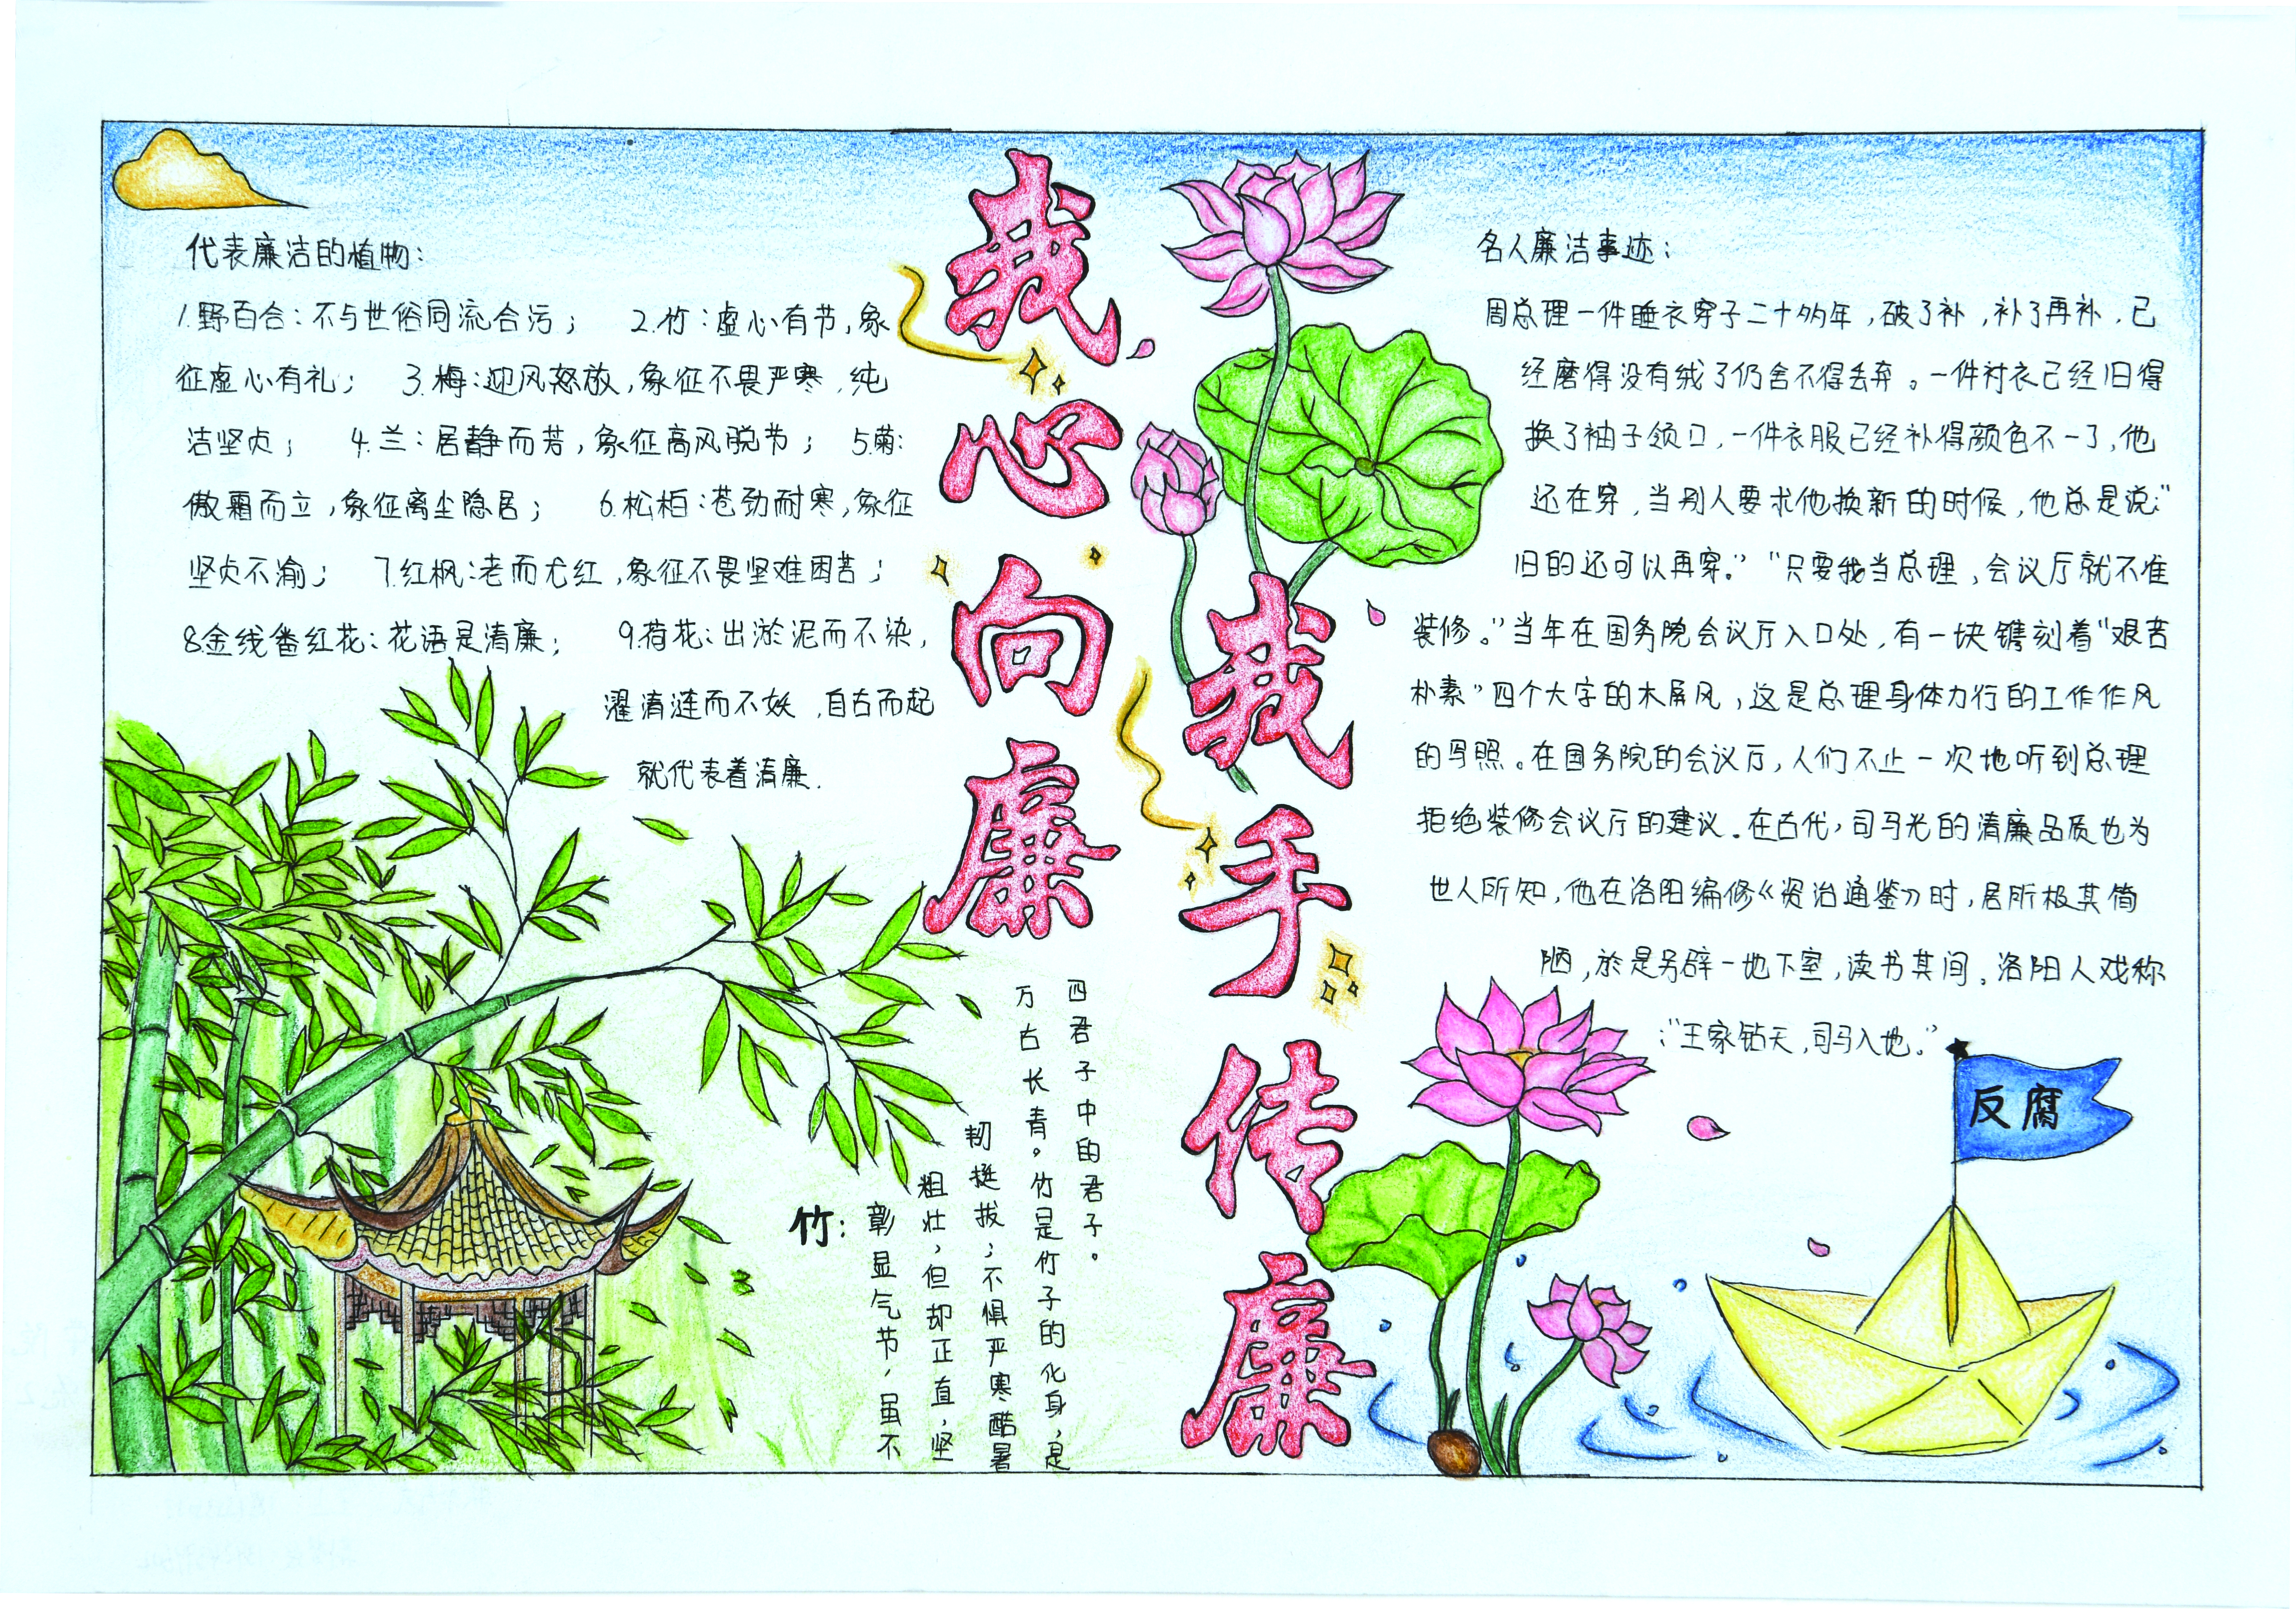 我心向廉
我手传廉
代表廉洁的植物：
1.野百合：不与世俗同流合污； 2.竹：虚心有节，象
征虚心有礼； 3.梅：迎风怒放，象征不畏严寒，纯
洁坚贞； 4.兰：居静而芳，象征高风脱节； 5.菊：
傲霜而立，象征离尘隐居； 6.松柏：苍劲耐寒，象征
坚贞不渝； 7.红枫：老而尤红，象征不畏坚难困苦；
8.金线番红花：花语是清廉； 9.荷花：出淤泥而不染，
濯清涟而不妖，自古而起
就代表着清廉.
竹：
彰显气节，虽不
粗壮，但却正直，坚
韧挺拔；不惧严寒酷暑
万古长青。竹是竹子的化身，是
四君子中的君子。
名人廉洁事迹：
周总理一件睡衣穿了二十多年，破了补，补了再补，已
经磨得没有绒了仍舍不得丢弃。一件衬衣已经旧得
换了袖子领口，一件衣服已经补得颜色不一了，他
还在穿，当别人要求他换新的时候，他总是说：“
旧的还可以再穿。”“只要我当总理，会议厅就不准
装修。”当年在国务院会议厅入口处，有一块镌刻着“艰苦
朴素”四个大字的木屏风，这是总理身体力行的工作作风
的写照。在国务院的会议厅，人们不止一次地听到总理
拒绝装修会议厅的建议.在古代，司马光的清廉品质也为
世人所知，他在洛阳编修《资治通鉴》时，居所极其简
陋，於是另辟一地下室，读书其间。洛阳人戏称
：“王家钻天，司马入地。”
反腐